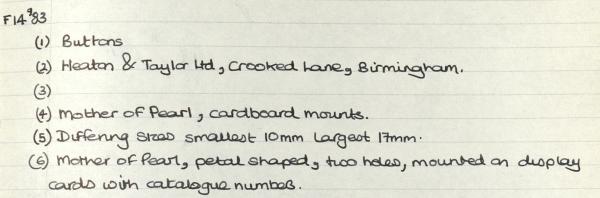 F14 9 83
(1) Buttons
(2) Heaton & Taylor Ltd, Crooked Lane, Birmingham.
(3)
(4) Mother of Pearl, cardboard mounts.
(5) Differing sizes smallest 10mm Largest 17mm.
(6) Mother of Pearl, petal shaped, two holes, mounted on display
cards with catalogue numbers.